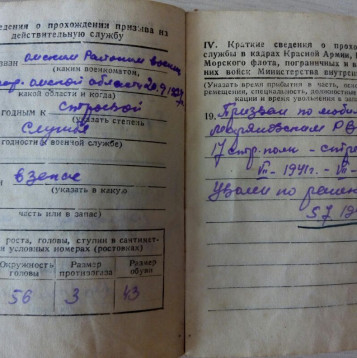 едения о прохождении призыва на
действительную службу
зван Омским Районным военк
(каким военкоматом,
Омской области
какой области и когда)
годным к строевой
(указать степень
службе
годности к военной службе)
в запас
(указать в какую
часть или в запас)
роста, головы, ступни в сантимет-
и условных номерах (ростовках)
Окружность головы
Размер противогаза
Размер обуви
56 3 43
IV. Краткие сведения о прохо
службы в кадрах Красной Армии,
Морского флота, пограничных и в
них войск Министерства внутрен
(Указать время прибытия в часть,
звание, специальность,
кации и время увольнения в за
19. Призван по моби
17 стр. полк - стре
VII - 1941г. - VII -
Уволен по решени
57